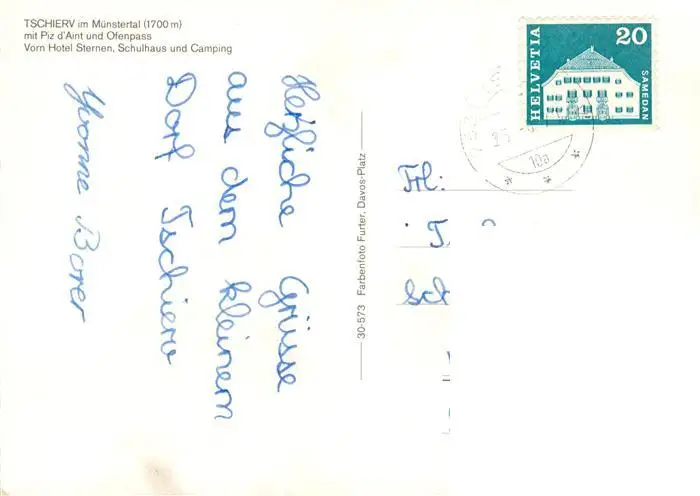 TSCHIERV im Münstertal (1700 m)
mit Piz d'Aint und Ofenpass
Vorn Hotel Sternen, Schulhaus und Camping
Herzliche Grüsse
aus dem kleinem
Dorf Tschierv
Yvonne Borer
30-573 Farbenfoto Furter, Davos-Platz
HELVETIA
20
SAMEDAN
10a
Frl:
T
Sch